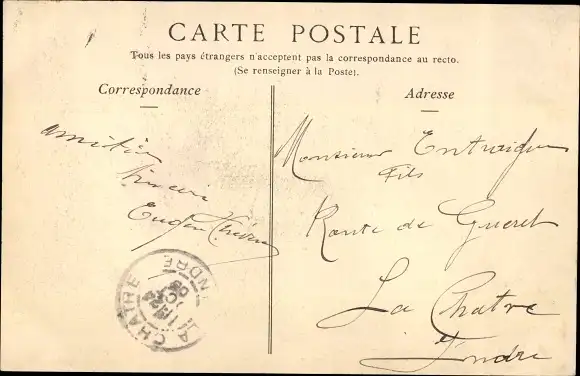 CARTE POSTALE
Tous les pays étrangers n'acceptent pas la correspondance au recto.
(Se renseigner à la Poste).
Correspondance
Adresse
amitiés
sincères
Monsieur Entraigues
Fils
Route de Gueret
La Chatre
Indre
LA CHATRE
INDRE